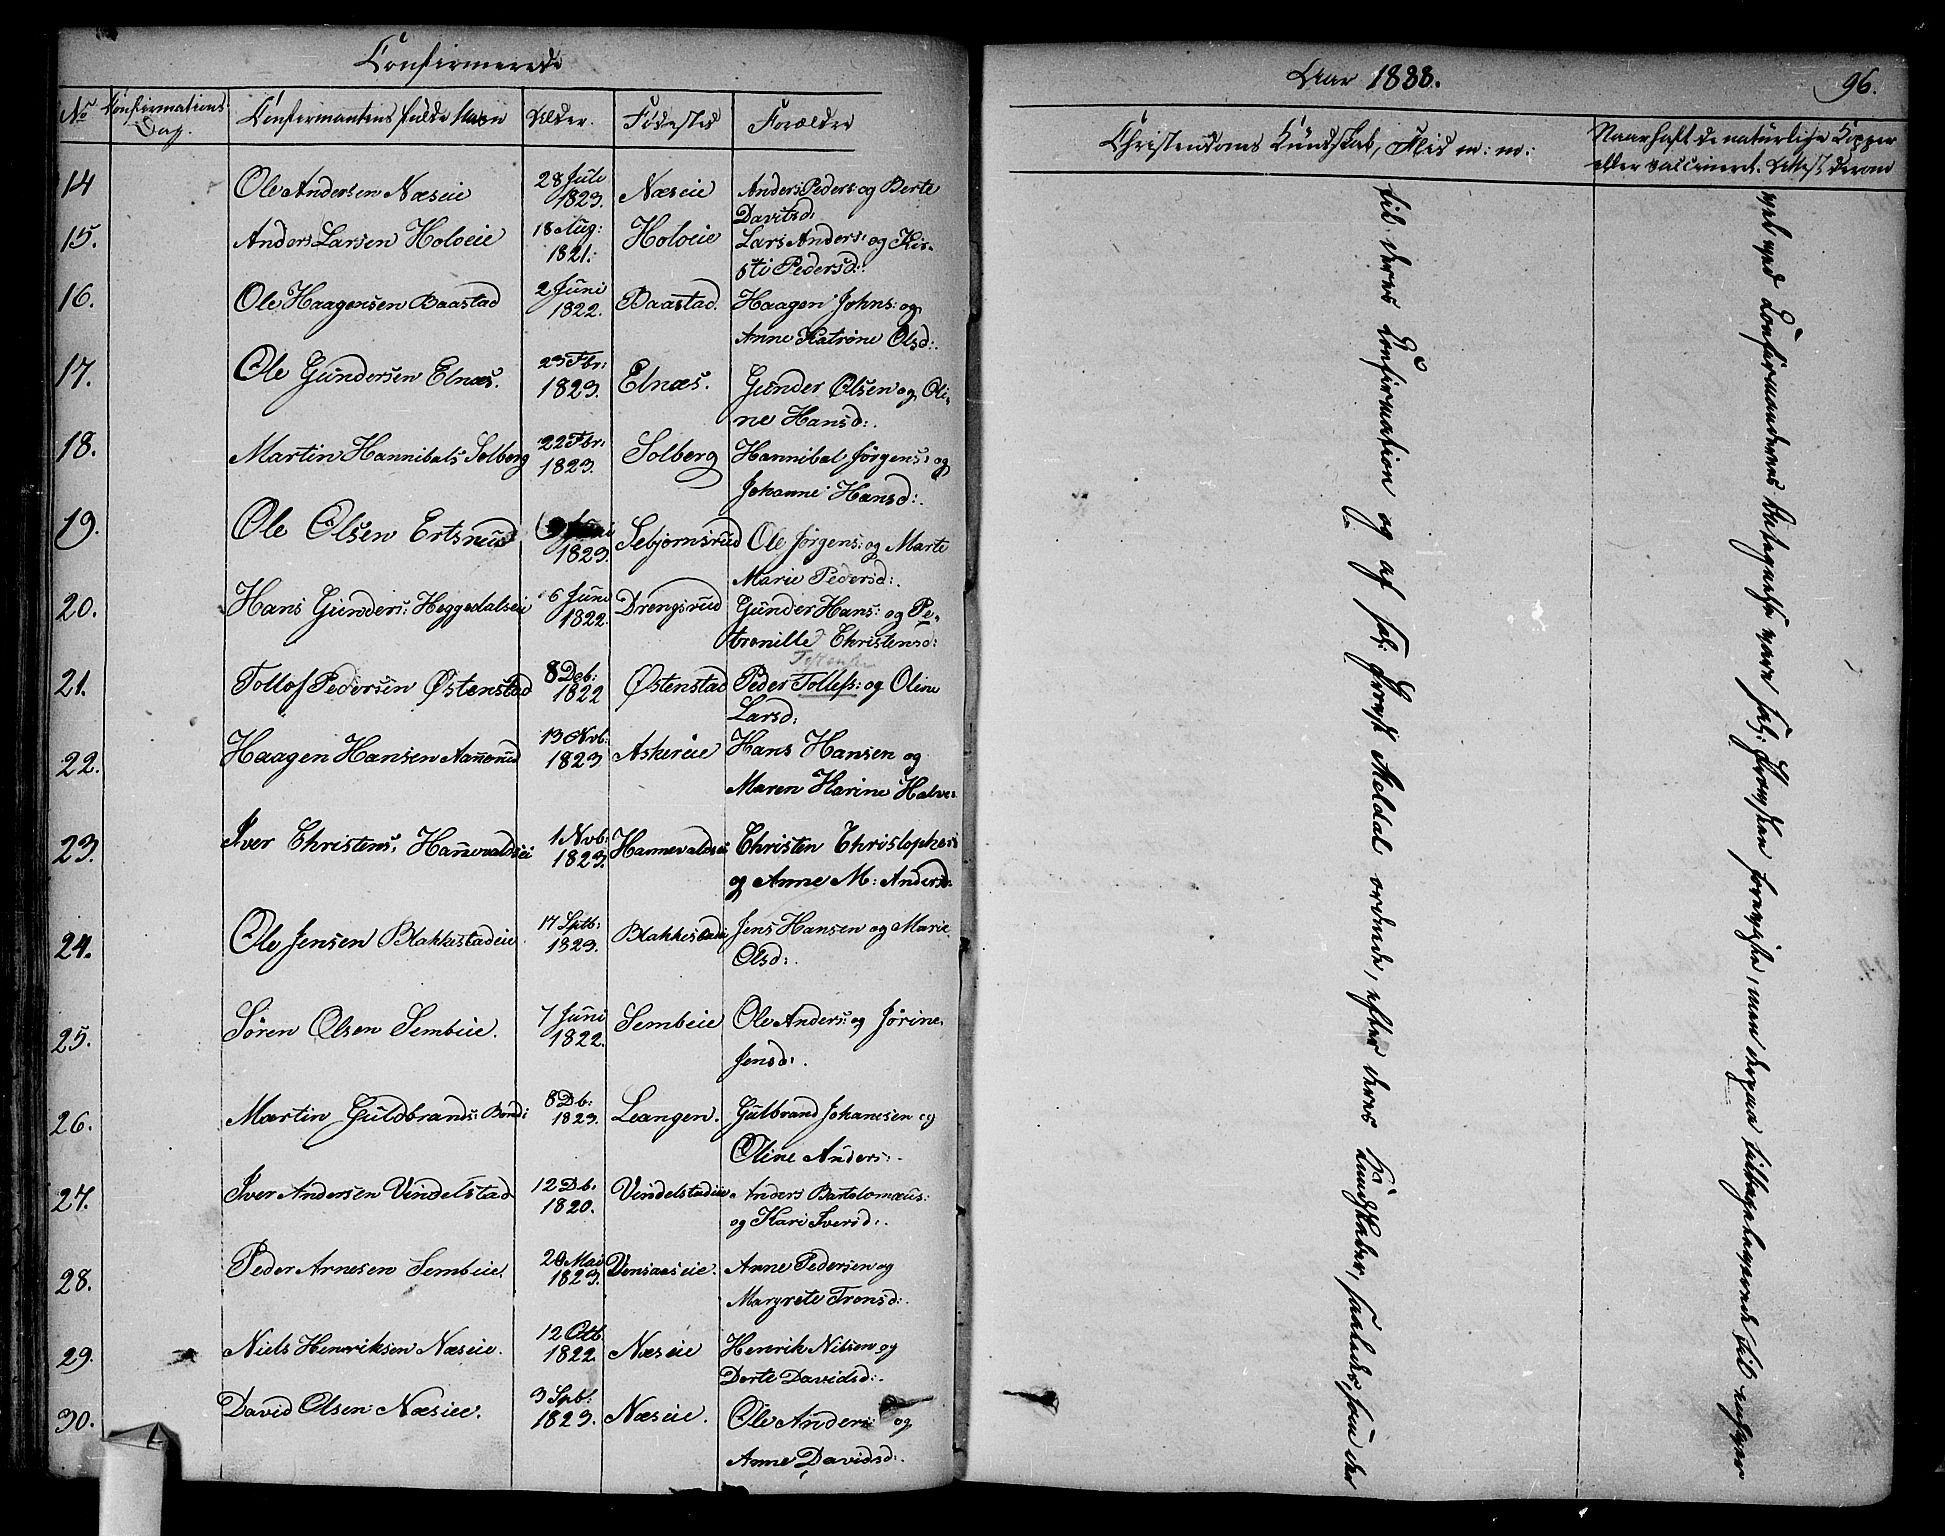 Confirmerede
No Confirmations Dag. Confirmantens fulde Navn Alder. Fødested Forældre
14 Ole Andersen Næseie 28 Juli 1823. Næseie Anders Peders: og Berte
Davitsd:
15. Anders Larsen Holoeie 18 Aug: 1821. Holoeie Lars Anders: og Kir-
sti Pedersd:
16. Ole Haagensen Baastad 2 Juni 1822. Baastad. Haagen Johns: og
Anne Katrine Olsd:
17. Ole Gundersen Elnæs. 23 Fbr: 1823. Elnæs. Gunder Olsen og Oli-
ne Hansd:
18. Martin Hannibals Solberg 22 Fbr: 1823. Solberg Hannibal Jørgens: og
Johanne Hansd:
19. Ole Olsen Ertsrud 1823. Sebjørnsrud Ole Jørgens: og Marte
Marie Pedersd:
20. Hans Gunders: Heggedalseie 6 Juni 1822. Drengsrud Gunder Hans: og Pe-
tronille Christensd:
21. Tollof Pedersen Østenstad 8 Deb: 1822 Østenstad Peder Tollefs: og Oline
Larsd:
22. Haagen Hansen Aamerud 13 Nvb: 1823 Askereie Hans Hansen og
Maren Karine Halv:
23. Iver Christens: Hannevaldsei 1 Nvb: 1823. Hannevaldsei Christen Christophers
og Anne M: Andersd:
24. Ole Jensen Blakkestadeie 17 Sptb: 1823. Blakkestadei Jens Hansen og Marie
Olsd:
25. Søren Olsen Sembeie. 7 Juni 1822. Sembeie Ole Anders: og Jørine
Jensd:
26. Martin Guldbrands: Bondi 8 Db: 1823. Leangen. Gulbrand Johanesen og
Oline Anders:
27. Iver Andersen Vindelstad 12 Db: 1820. Vindelstadeie Anders Bartolomæus:
og Kari Iversd:
28. Peder Arnesen Sembeie. 20 Mai 1823. Vensaaseie. Anne Pedersen og
Margrete Tronsd:
29. Niels Henriksen Næseie. 12 Octb 1822. Næseie Henrik Nilsen og
Dorte Davidsd:
30. David Olsen Næseie. 3 Spb: 1823. Næseie. Ole Anders: og
Anne Davidsd:
Aar 1838. 96.
Christendoms Kundskab, Flid m: m: Naar haft de natürlige Kopper
eller vaccineret. Attest derom
til deres Confirmation og af hr: Provst Meldal ordnede, efter deres Kundskaber, saaledes, som de
ved Confirmandernes være forevist, man derpaa til